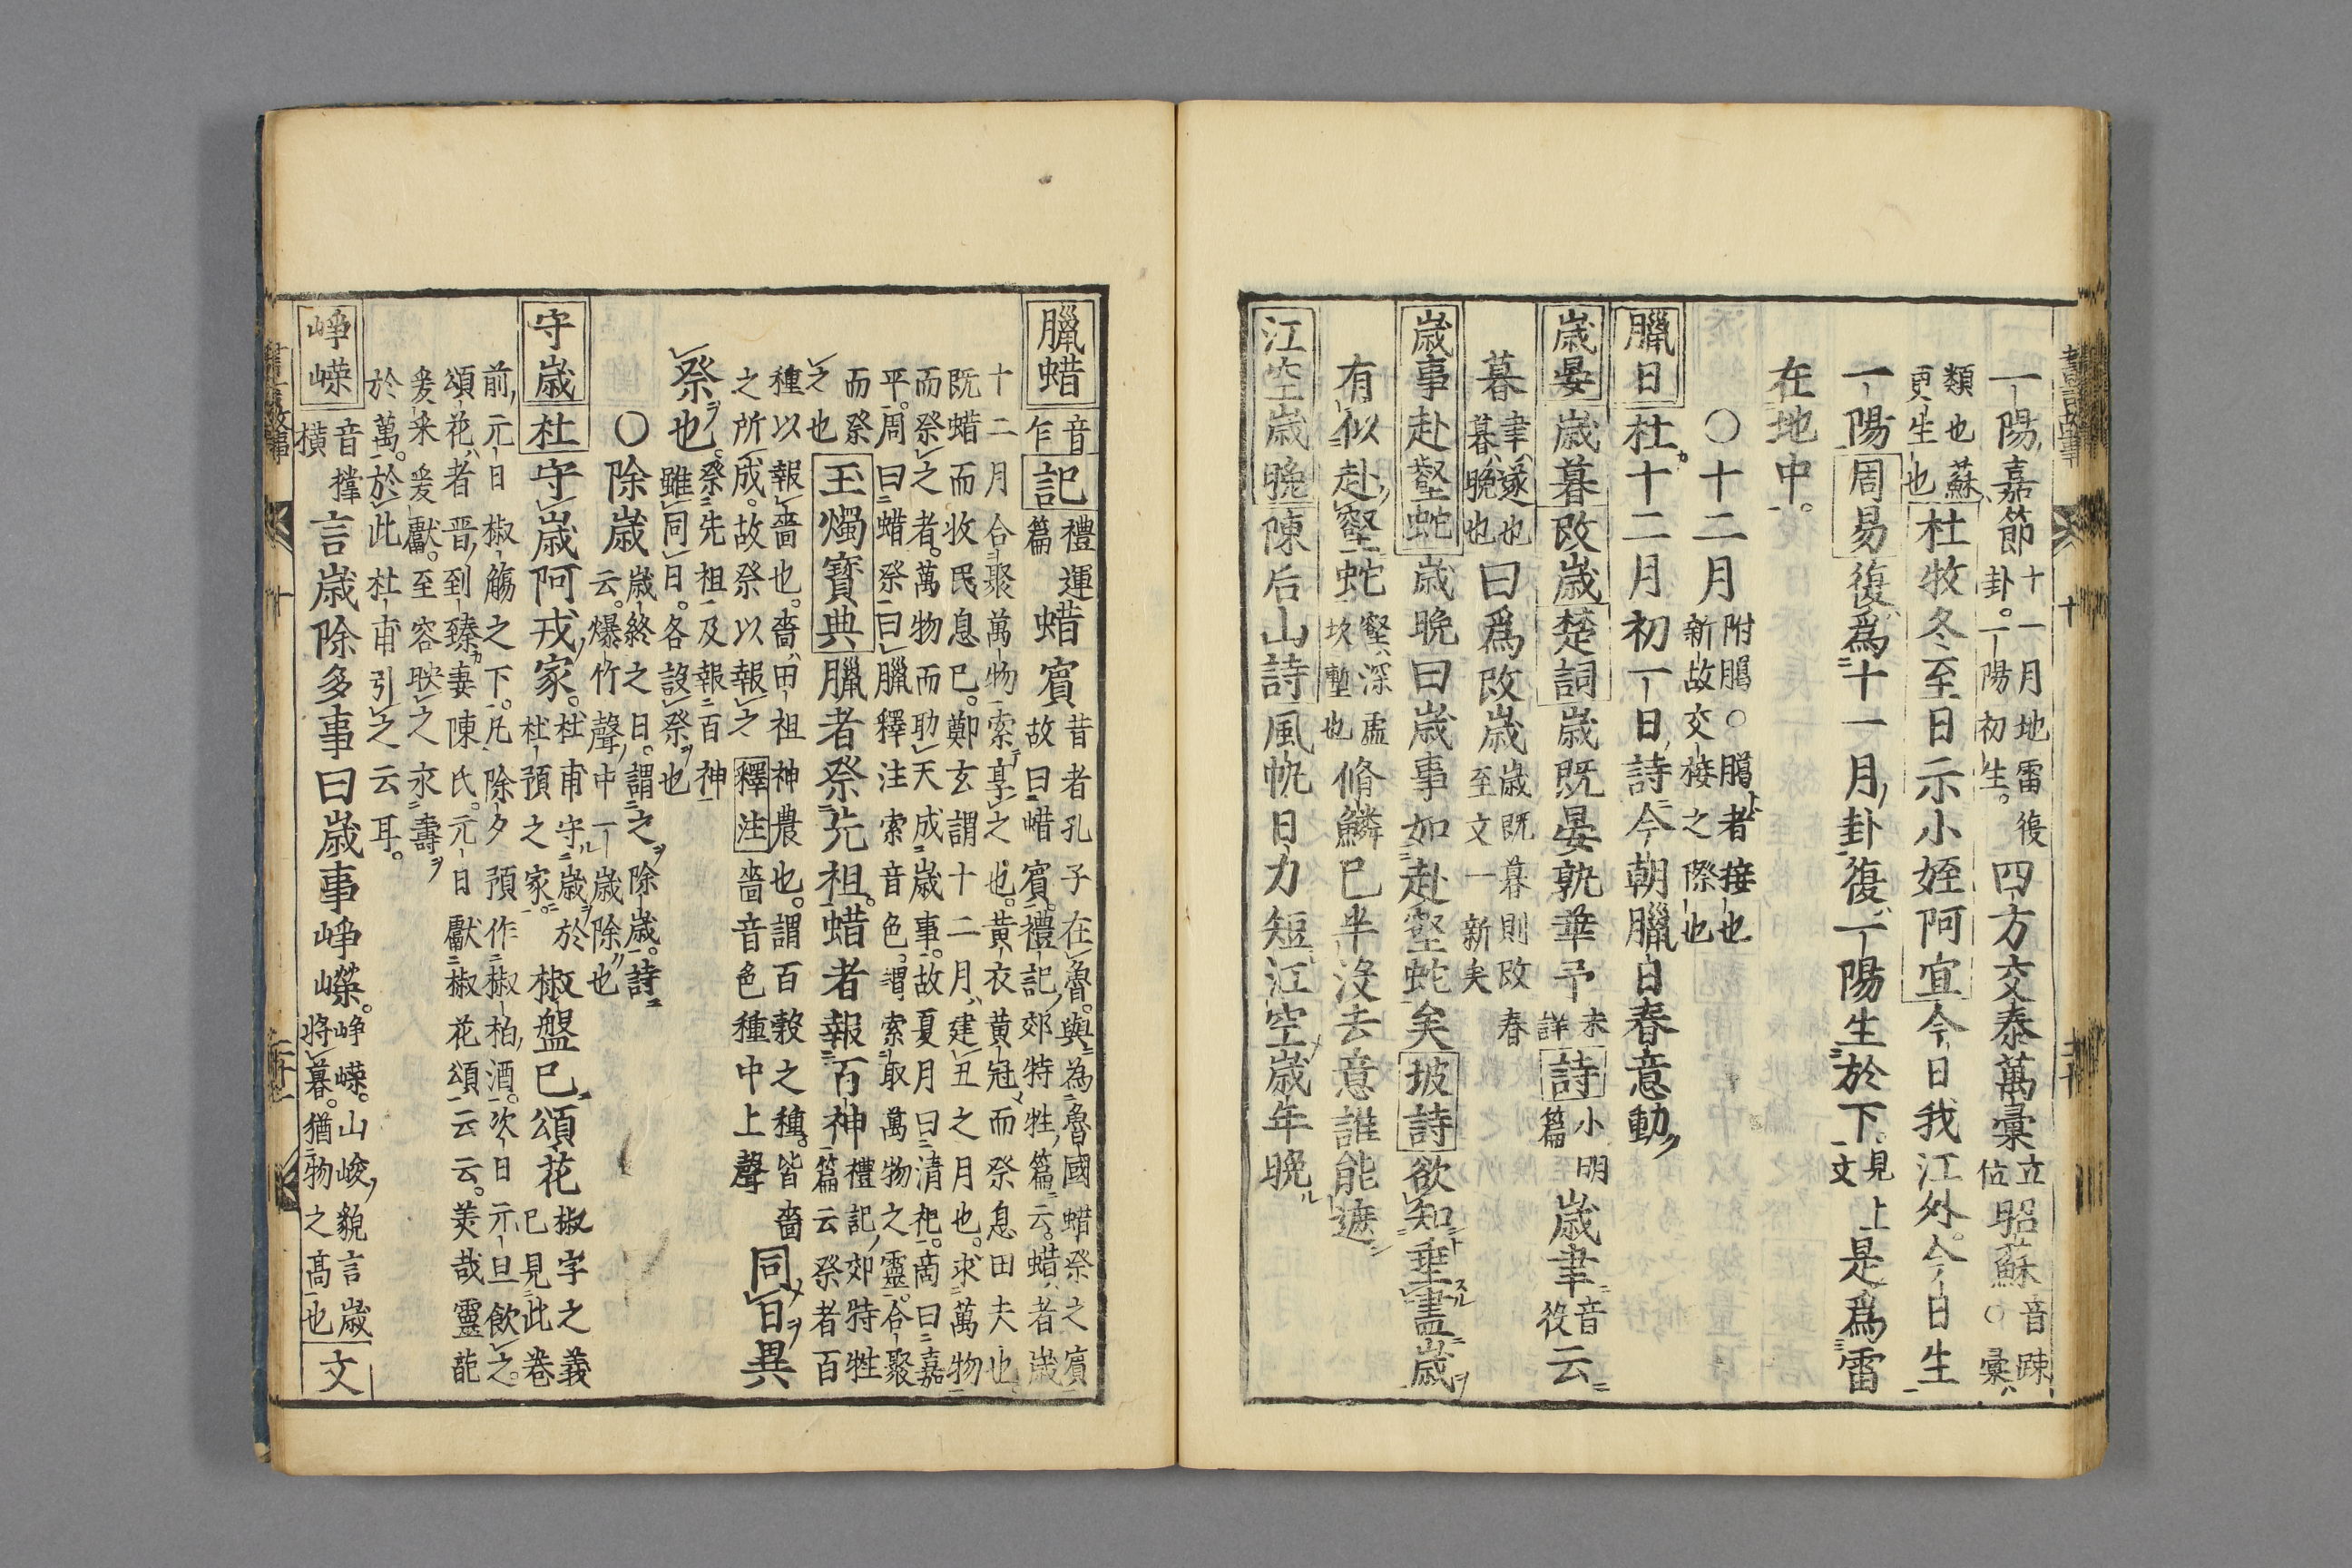 一陽嘉節十一月地雷復卦一陽初生四方交泰萬彙立位昭蘇音踈○彙
類也蘇更生也杜牧冬至日示小姪阿宜今日我江外今日生
一陽周易復爲十一月卦復一陽生於下見上文是爲雷
在地中
○十二月附臈○臈者接也新故交接之際也
臘日杜十二月初一日詩今朝臘日春意動
歳晏歳暮改歳楚詞歳既晏孰華予未詳詩小明篇歳聿音役云
暮聿遂也暮晩也曰爲改歳歳既暮則改春至文一新矣
歳事赴壑蛇歳晩曰歳事如赴壑蛇矣坡詩欲知垂盡歳
有似赴壑蛇壑深盂坎塹也脩鱗已半没去意誰能遮
江空歳晩陳后山詩風帆日力短江空歳年晩
臘蜡音乍記禮運篇蜡賓昔者孔子在魯與爲魯國蜡祭之賓故曰蜡賓禮記郊特牲篇云蜡者歳
十二月合聚萬物索享之也黄衣黄冠而祭息田夫也
既蜡而收民息已鄭玄謂十二月建丑之月也求萬物
而祭之者萬物而助天成歳事故夏月曰清祀啇曰嘉
平周曰蜡祭曰臘釋注索音色謂索取萬物之靈合聚
而祭之也玉燭寳典臘者祭先祖蜡者報百神禮記郊特牲篇云祭者百
種以報嗇也嗇田祖神農也謂百穀之種皆嗇
之所成故祭以報之釋注嗇音色種中上聲同日異
祭也祭先祖及報百神雖同日各設祭也
○除歳歳終之日謂之除歳詩云爆竹聲中一歳除也
守歳杜守歳阿戎家杜甫守歳於杜預之家椒盤已頌花椒字之義已見此巻
前元日椒觴之下凡除夕預作椒柏酒次日元旦飲之
頌花者晋到臻妻陳氏元日獻椒花頌云云美哉靈葩
爰采爰獻至容映之永壽
於萬於此杜甫引之云耳
崢嶸音撑橫言歳除多事曰歳事崢嶸崢嶸山峻貌言歳將暮猶物之高也文